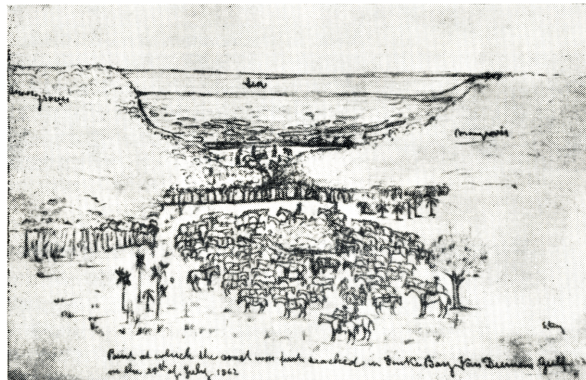 Sea
mangroves
mangroves
S. King
Point at which the coast was first reached in Finke Bay Van Diemens Gulf
on the 24th of July 1862